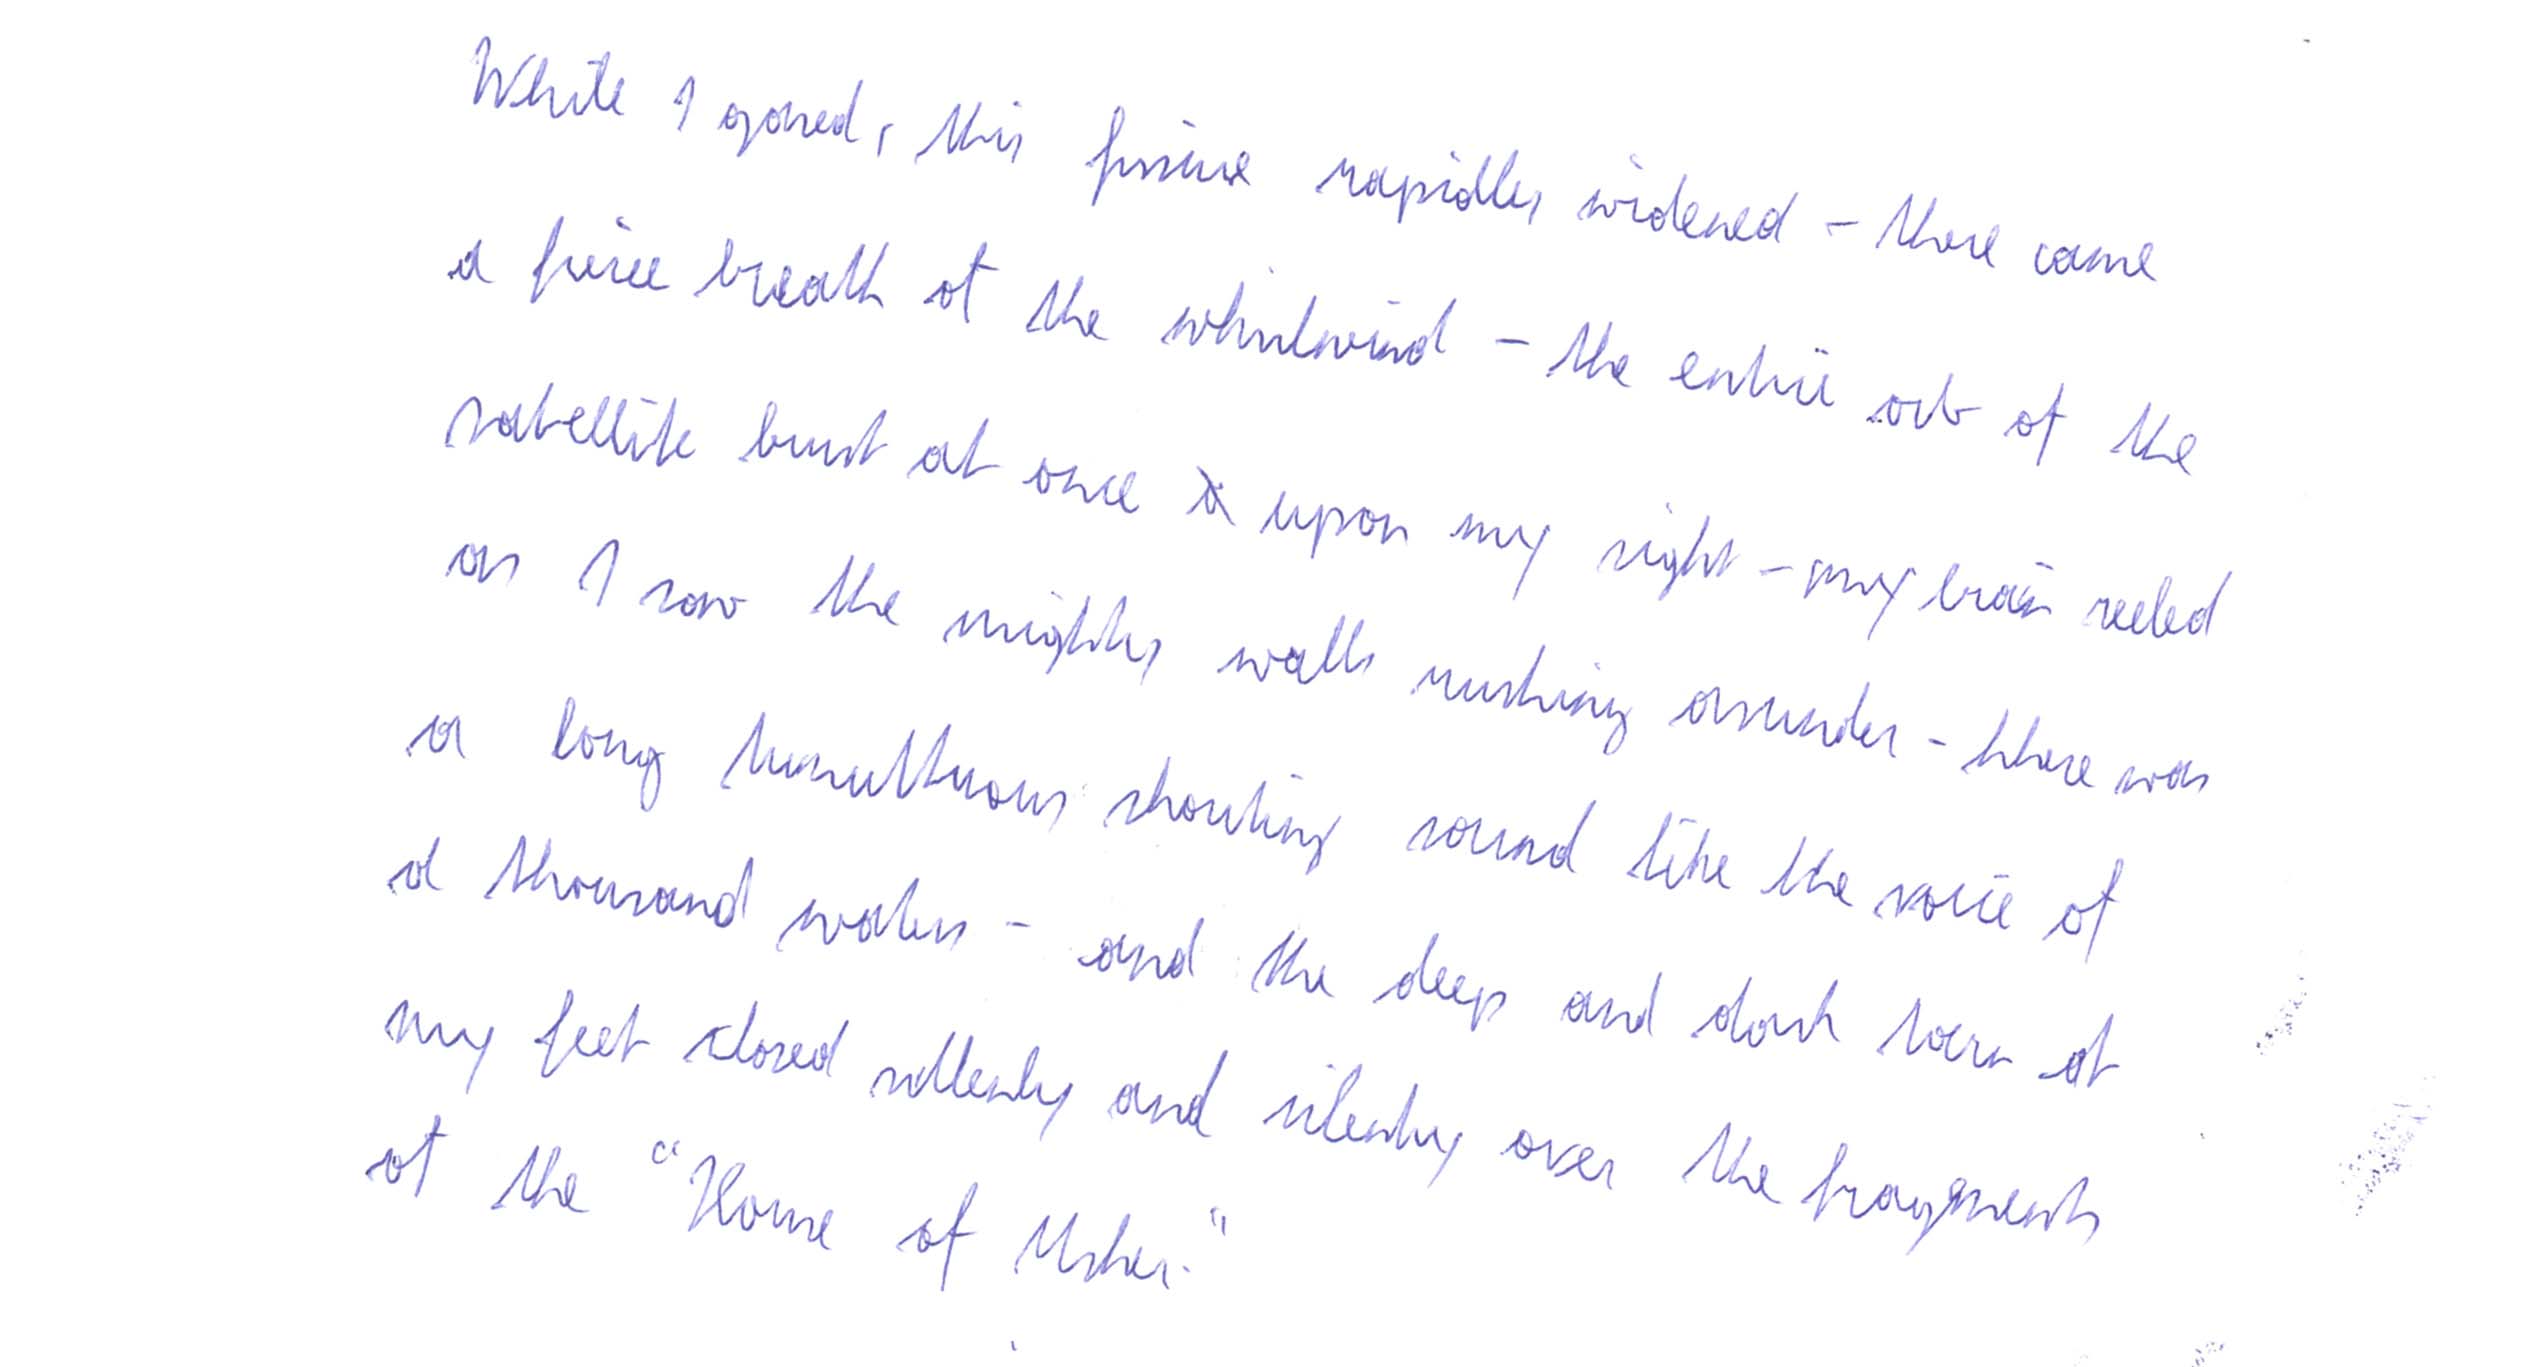 While I gazed, this fissure rapidly widened - there came
a fierce breath of the whirlwind - the entire orb of the
satellite burst at once upon my sight - my brain reeled
as I saw the mighty walls rushing asunder - there was
a long tumultuous shouting sound like the voice of
a thousand waters - and the deep and dank tarn at
my feet closed sullenly and silently over the fragments
of the "House of Usher."